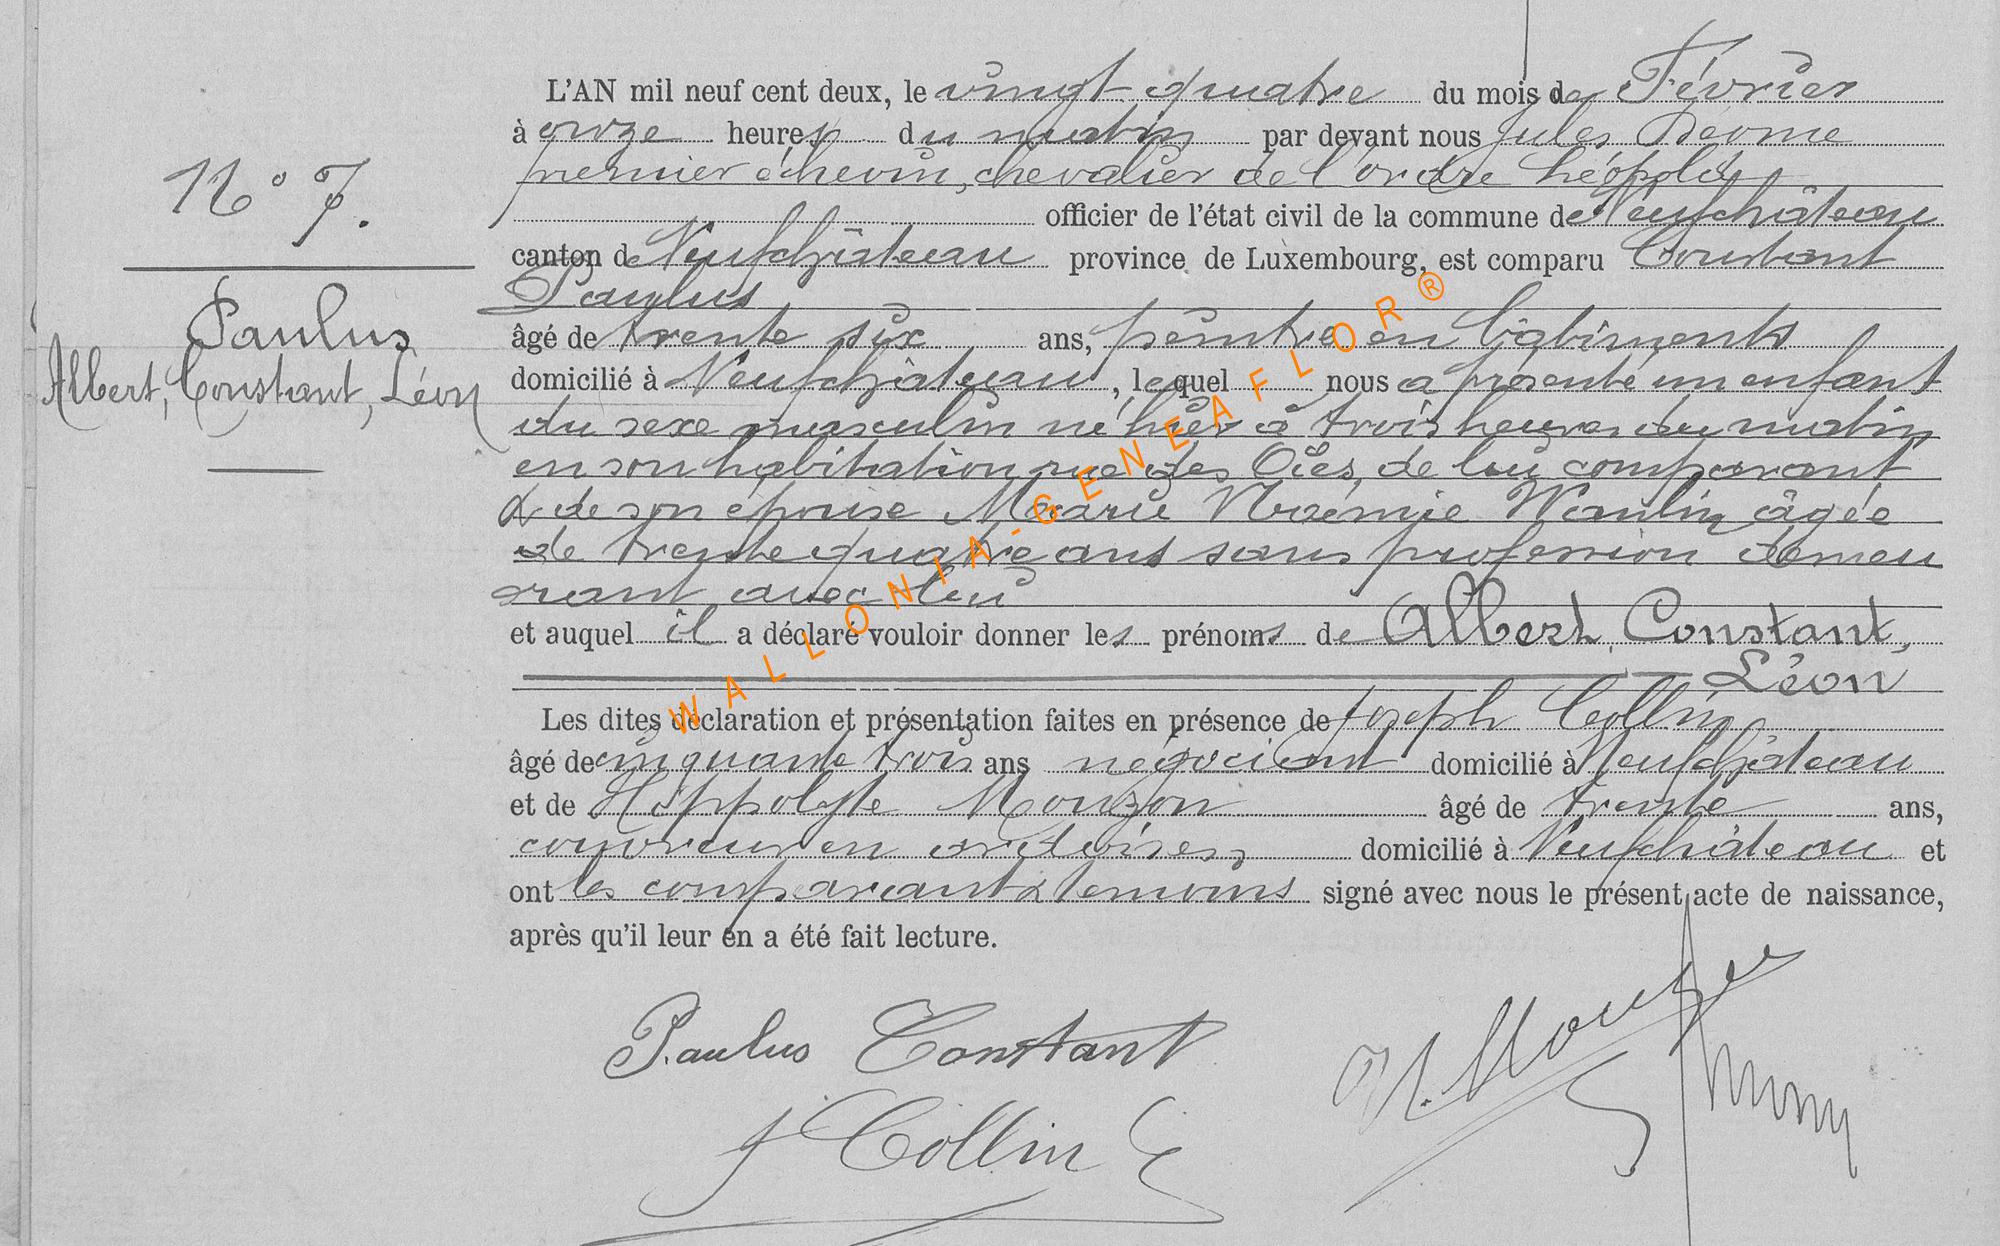 N° 7.
Paulus
Albert, Constant, Léon
L'AN mil neuf cent deux, le vingt quatre du mois de Février
à onze heures du matin par devant nous Jules
premier échevin, chevalier de l'ordre Léopold,
officier de l'état civil de la commune de Neufchâteau
canton de Neufchâteau province de Luxembourg, est comparu Constant
Paulus
âgé de trente six ans, peintre en bâtiments
domicilié à Neufchâteau, lequel nous a présenté un enfant
du sexe masculin né hier à trois heures du matin
en son habitation rue des Oies, de lui comparant
& de son épouse Marie Noémie Waulin âgée
de trente quatre ans sans profession demeu
rant avec lui
et auquel il a déclaré vouloir donner les prénoms de Albert, Constant,
Léon
Les dites déclaration et présentation faites en présence de Joseph Collin
âgé de cinquante trois ans négociant domicilié à Neufchâteau
et de Hippolyte Mouzon âgé de trente ans,
couvreur en ardoises, domicilié à Neufchâteau et
ont les comparant & témoins signé avec nous le présent acte de naissance,
après qu'il leur en a été fait lecture.
Paulus Constant
H. Mouzon
J Collin
WALLONIA-GENEAFLOR®